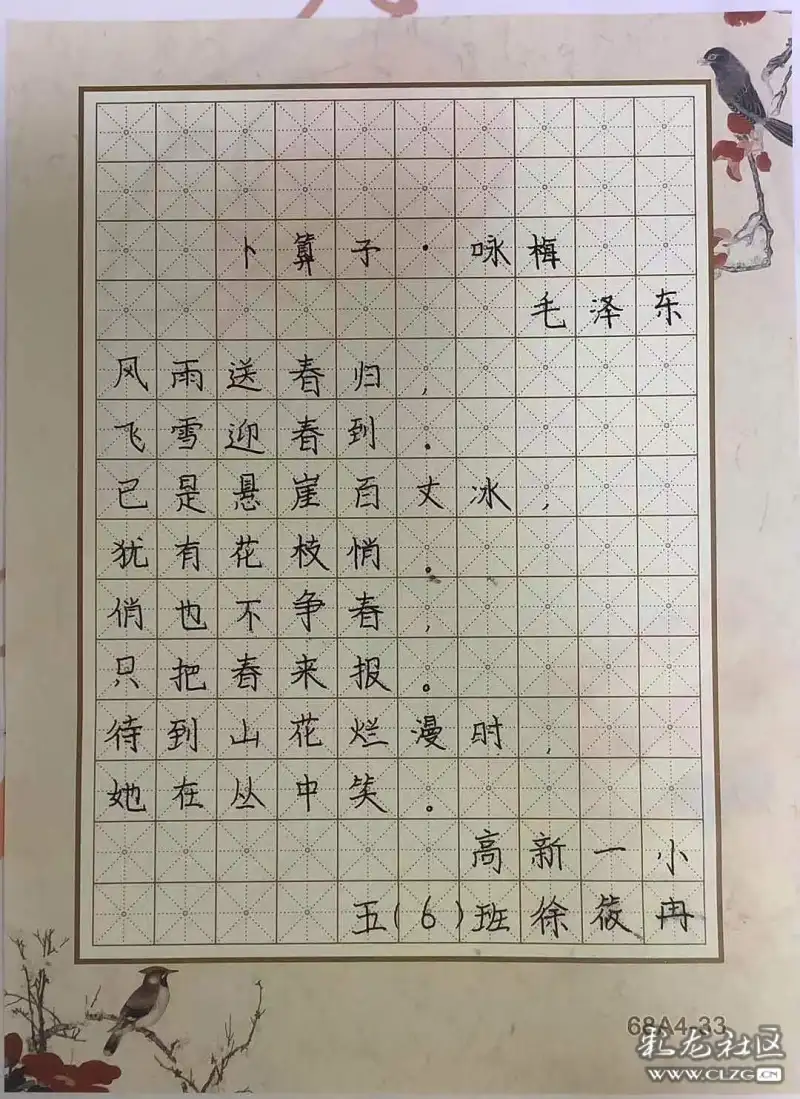 卜算子·咏梅
毛泽东
风雨送春归,
飞雪迎春到。
已是悬崖百丈冰,
犹有花枝悄。
俏也不争春,
只把春来报。
待到山花烂漫时,
她在丛中笑。
高新一小
五(6)班徐筱冉
68A4-33
彩龙社区
WWW.CLZG.CN